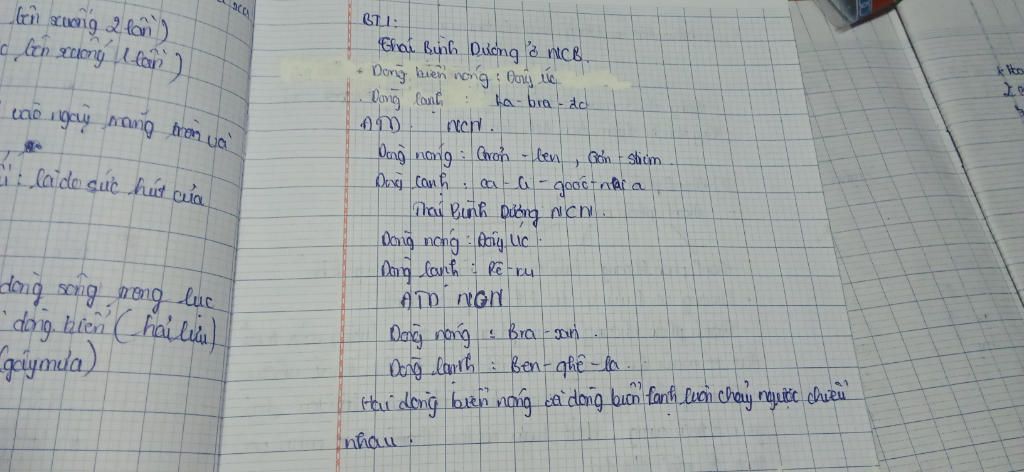 lên xuống 2 lần)
lên xuống 1 lần)
vào ngày trăng tròn và
: là do sức hút của
dòng sông trong lục
dòng biển (hải lưu)
(gây mưa)
BT1:
Thái Bình Dương ở NCB.
+ Dòng biển nóng: Đông Úc
. Dòng lạnh: La-bra-đo
ATD NCN.
Dòng nóng: Grơn-len, Gơn-xtrim.
Dòng lạnh: ca-li-gooc-nhi a
Thái Bình Dương NCN.
Dòng nóng: Đông Úc.
Dòng lạnh: Pê-ru
ATD NGN
Dòng nóng: Bra-xin.
Dòng lạnh: Ben-ghê-la.
Hai dòng biển nóng và dòng biển lạnh luôn chảy ngược chiều
nhau.